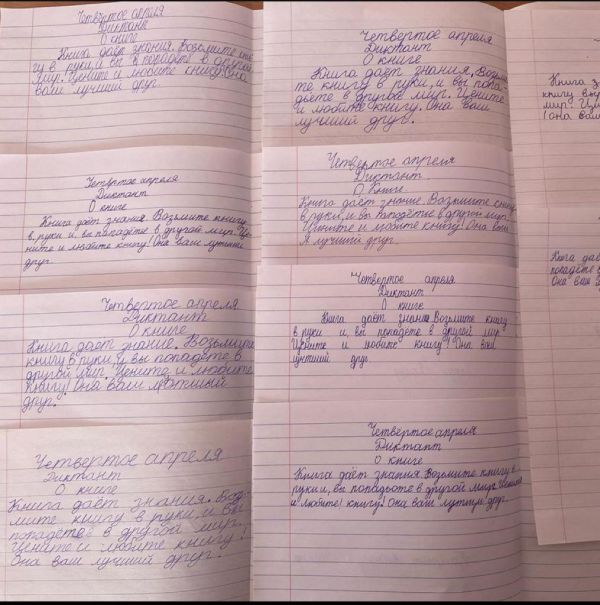 Четвертое апреля
Диктант
О книге
Книга даёт знания. Возьмите кни
гу в руки, и вы попадёте в другой
мир. Цените и любите книгу! Она
ваш лучший друг.
Четвертое апреля
Диктант
О книге
Книга даёт знания. Возьмите книгу
в руки и вы попадёте в другой мир. Це-
ните и любите книгу! Она ваш лутший
друг.
Четвертое апреля
Диктант
О книге
Книга даёт знание. Возьмите
книгу в руки и вы попадёте в
другой мир. Цените и любите
книгу! Она ваш лутший
друг.
Четвертое апреля
Диктант
О книге
Книга даёт знания. Воз-
мите книгу в руки и вы
попадёте в другой мир.
Цените и любите книгу!
Она ваш лучший друг.
Четвертое апреля
Диктант
О книге
Книга даёт знания. Возьми-
те книгу в руки, и вы попа-
дьёте в другой мир. Цените
и любите книгу. Она ваш
лучший друг.
Четвертое апреля
Диктант
О Книге
Книга даёт знание. Возмите книгу
в руки, и вы попадётие в другои мир.
Цините и любите книгу! Она ваш
лучший друг.
Четвертое апреля
Диктант
О книге
Книга даёт знания Возьмите книгу
в руки и вы попадёте в другой мир
Цените и любите книгу! Она ваш
друг
Четвертое апреля
Диктант
О книге
Книга даёт знания. Возмите книгу в
руки и, вы попадьоте в другой мир.
и любите! книгу. Она ваш лутший друг.
Книга з
книгу в
мир Ци
! она вам
Книга даё
попадёте в
Она ваш